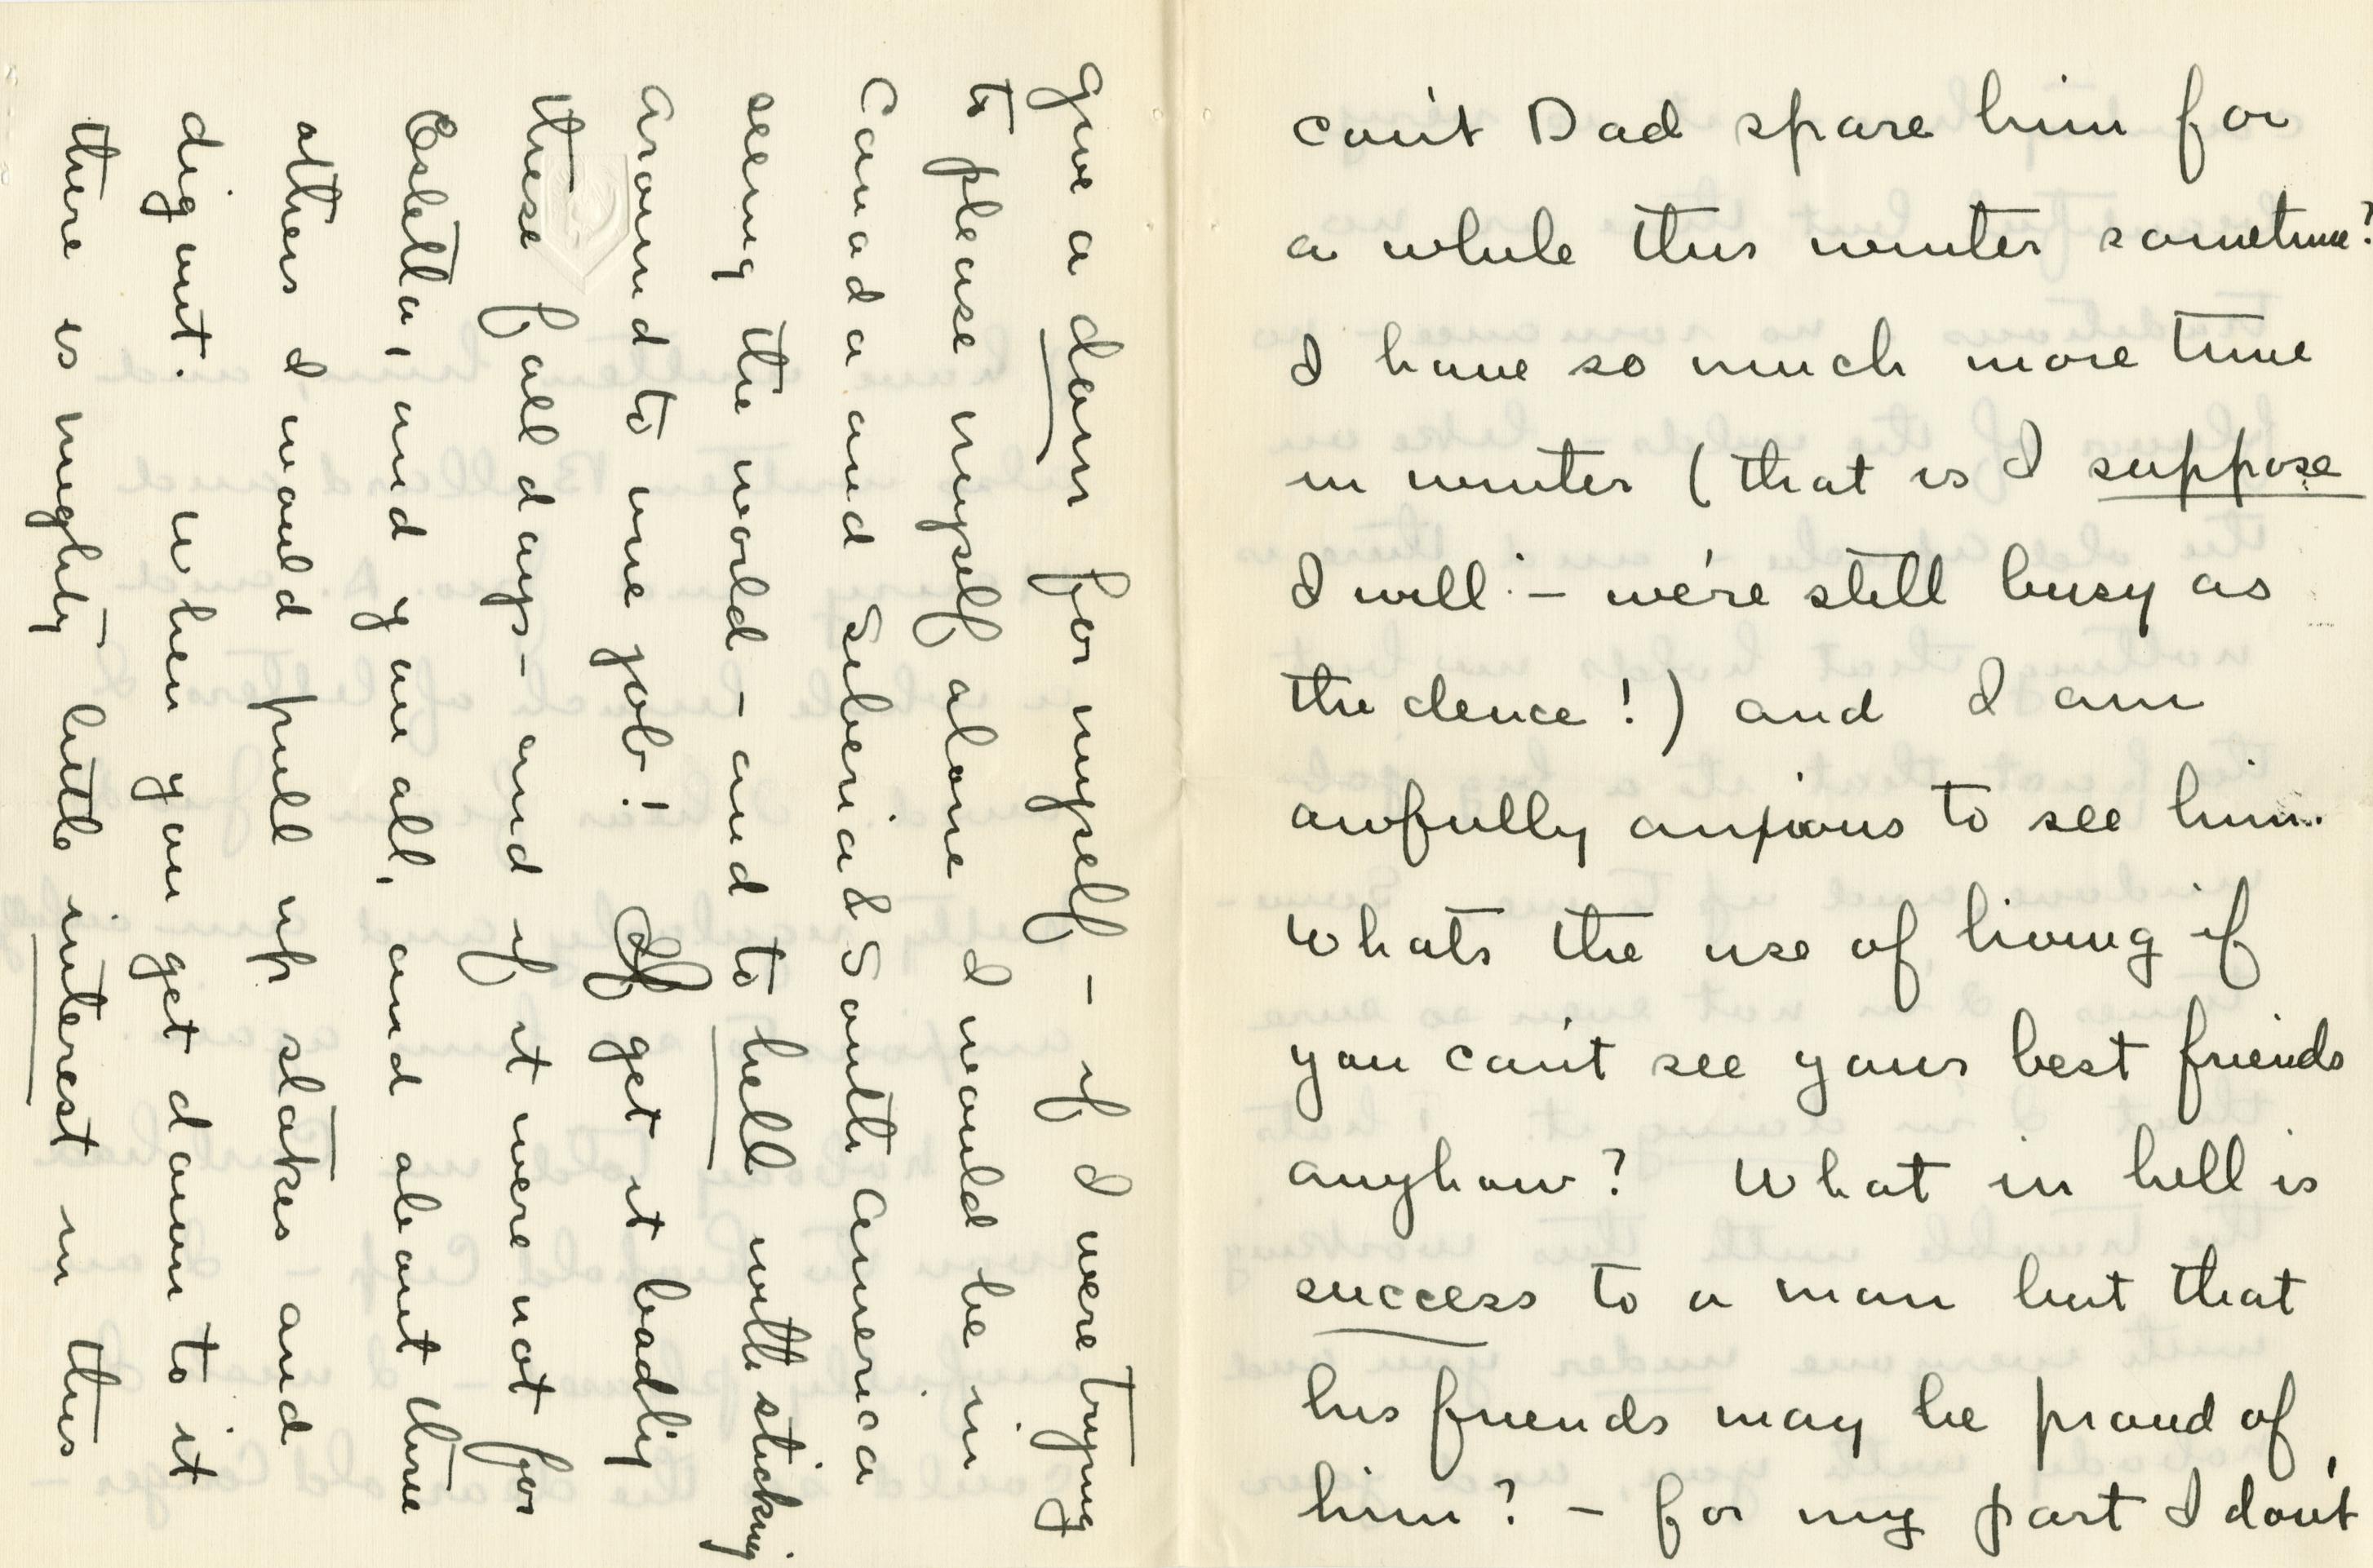 can't Dad spare him for
a while this winter sometime?
I have so much more time
in winter (that is I suppose
I will – we're still busy as
the deuce!) and I am
awfully anxious to see him.
Whats the use of living if
you can't see your best friends
anyhow? What in hell is
success to a man but that
his friends may be proud of
him? – for my part I don't
give a damn for myself – if I were trying
to please myself alone I would be in
Canada and Siberia & South America
seeing the world – and to hell with sticking
around to one job! I get it badly
these fall days – and if it were not for
Estella, and you all, and about three
others I would pull up stakes and
dig out. When you get down to it
there is mighty little interest in this